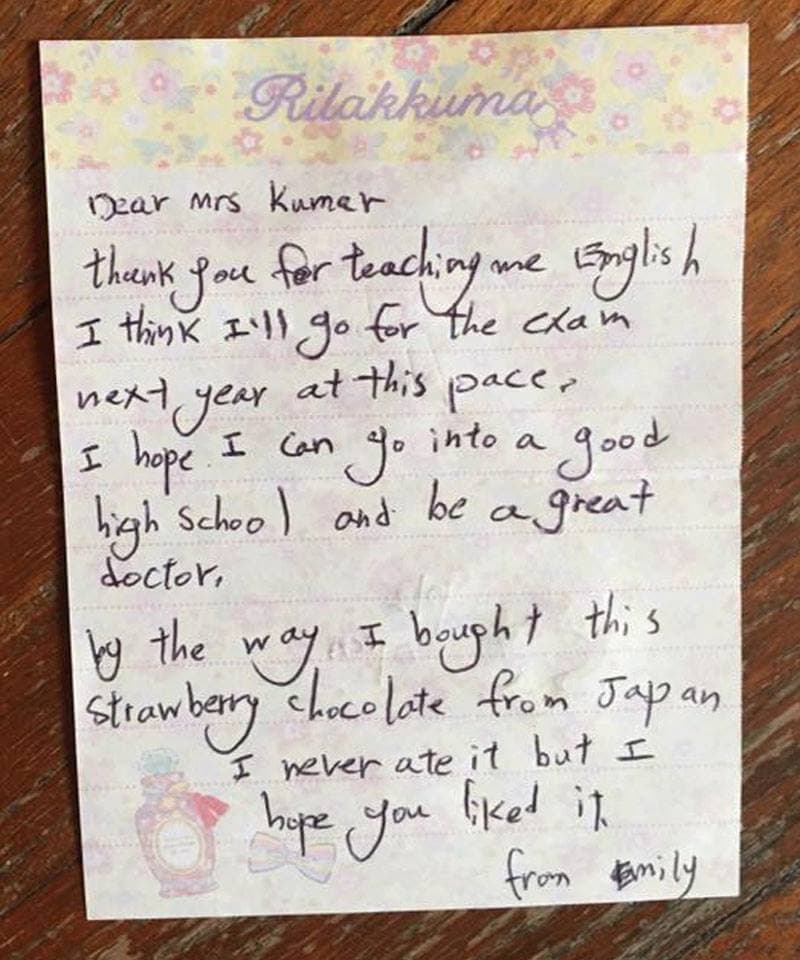 Rilakkuma
Dear Mrs Kumar
thank you for teaching me English
I think I'll go for the exam
next year at this pace.
I hope I can go into a good
high school and be a great
doctor.
by the way I bought this
strawberry chocolate from Japan
I never ate it but I
hope you liked it.
from Emily